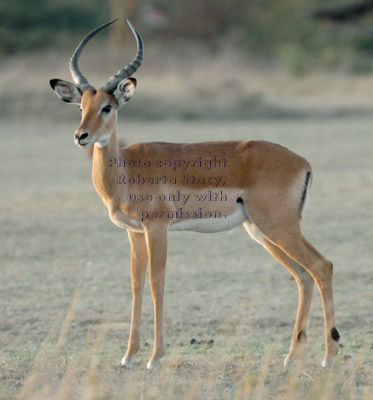 Photo copyright
Roberta Stacy,
use only with
permission.